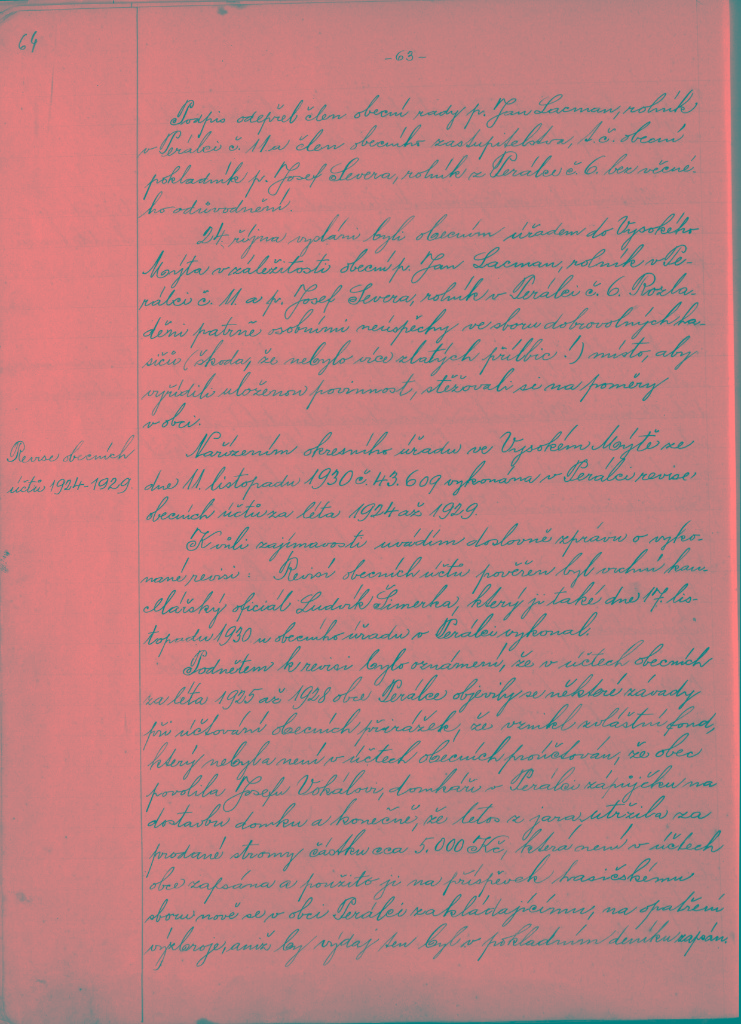 64
-63-
Podpis odepřel člen obecní rady p. Jan Lacman, rolník
v Perálci č. 11 a člen obecního zastupitelstva, t. č. obecní
pokladník p. Josef Severa, rolník z Perálce č. 6. bez věcné-
ho odůvodnění.
24. října vysláni byli obecním úřadem do Vysokého
Mýta v záležitosti obecní p. Jan Lacman, rolník v Pe-
rálci č. 11. a p. Josef Severa, rolník v Perálci č. 6. Rozla-
děni patrně osobními neúspěchy ve sboru dobrovolných ha-
sičů (škoda, že nebylo více zlatých přílbic!) místo, aby
vyřídili uloženou povinnost, stěžovali si na poměry
v obci.
Revise obecních
účtů 1924-1929.
Nařízením okresního úřadu ve Vysokém Mýtě ze
dne 11. listopadu 1930 č. 43.609 vykonána v Perálci revise
obecních účtů za léta 1924 až 1929.
K vůli zajímavosti uvádím doslovně zprávu o vyko-
nané revisi: Revisí obecních účtů pověřen byl vrchní kan-
celářský oficiál Ludvík Šimerka, který ji také dne 17. lis-
topadu 1930 u obecního úřadu v Perálci vykonal.
Podnětem k revisi bylo oznámení, že v účtech obecních
za léta 1925 až 1928 obce Perálce objevily se některé závady
při účtování obecních přirážek, že vznikl zvláštní fond,
který nebyl a není v účtech obecních proúčtován, že obec
povolila Josefu Vokálovi, domkáři v Perálci zápůjčku na
dostavbu domku a konečně, že letos z jara utržila za
prodané stromy částku cca 5.000 Kč, která není v účtech
obce zapsána a použito jí na příspěvek hasičskému
sboru nově se v obci Perálci zakládajícímu, na opatření
výzbroje, aniž by výdaj ten byl v pokladním deníku zapsán.